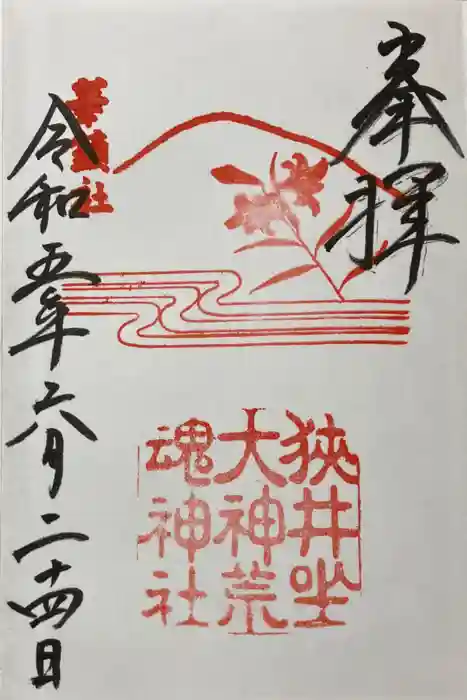 奉拝
狭井坐
大神荒
魂神社
華鎮社
令和五年六月二十四日